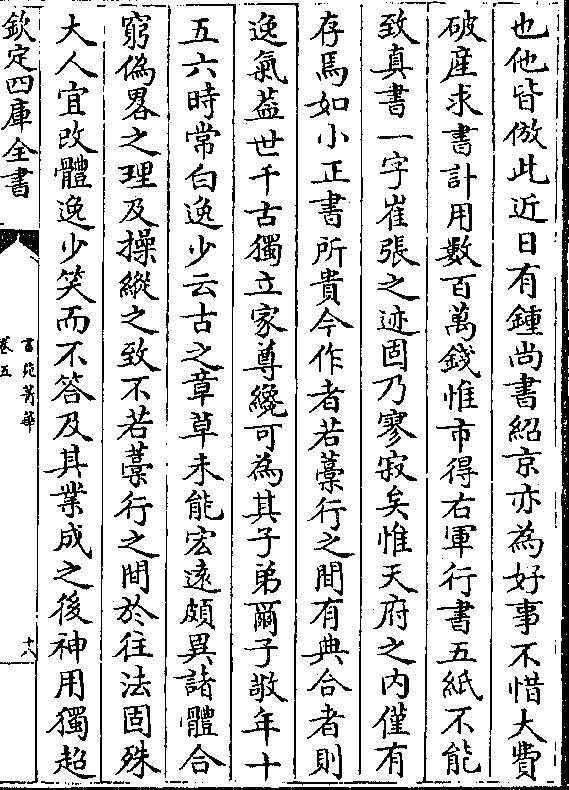 也他皆倣此近日有鍾尚書紹京亦為好事不惜大費
破産求書計用數百萬錢惟市得右軍行書五紙不能
致真書一字崔張之迹固乃寥寂矣惟天府之内僅有
存焉如小正書所貴今作者若藁行之間有典合者則
逸氣蓋世千古獨立家尊纔可為其子弟爾子敬年十
五六時常白逸少云古之章草未能宏逺頗異諸體合
窮偽畧之理及操縱之致不若藁行之間於往法固殊
大人宜改體逸少笑而不答及其業成之後神用獨超
欽定四庫全書
書苑菁華
卷五
十八